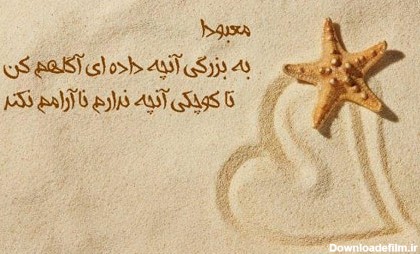 معبودا
به بزرگی آنچه داده ای آگاهم کن
تا کوچکی آنچه ندارم ناآرامم نکند
Downloadefilm.ir